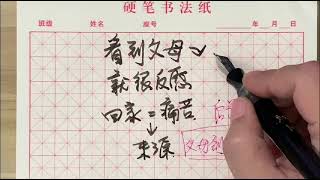 硬笔书法纸
班级 姓名 座号 年 月 日
看到父母
就很反感
回家=痛苦
↓
来源
父母到